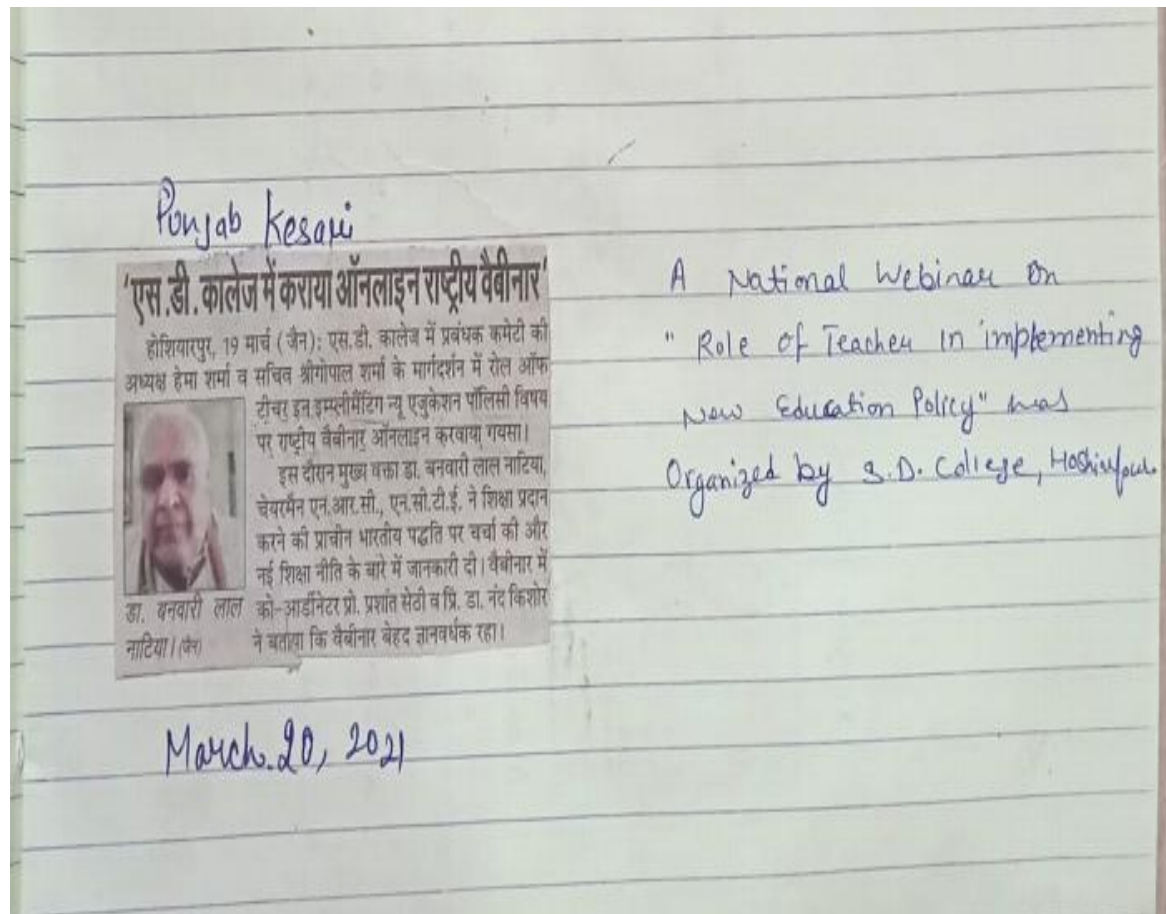 Punjab Kesari
'एस.डी. कालेज में कराया ऑनलाइन राष्ट्रीय वैबीनार'
होशियारपुर, 19 मार्च (जैन): एस.डी. कालेज में प्रबंधक कमेटी की
अध्यक्ष हेमा शर्मा व सचिव श्रीगोपाल शर्मा के मार्गदर्शन में रोल ऑफ
टीचर इन इम्प्लीमैंटिंग न्यू एजुकेशन पॉलिसी विषय
पर राष्ट्रीय वैबीनार ऑनलाइन करवाया गयसा।
इस दौरान मुख्य वक्ता डा. बनवारी लाल नाटिया,
चेयरमैन एन.आर.सी., एन.सी.टी.ई. ने शिक्षा प्रदान
करने की प्राचीन भारतीय पद्धति पर चर्चा की और
नई शिक्षा नीति के बारे में जानकारी दी। वैबीनार में
को-आर्डीनेटर प्रो. प्रशांत सेठी व प्रिं. डा. नंद किशोर
ने बताया कि वैबीनार बेहद ज्ञानवर्धक रहा।
डा. बनवारी लाल
नाटिया। (जैन)
March.20, 2021
A National Webinar On
" Role of Teacher in implementing
New Education Policy" was
Organized by S.D. College, Hoshiarpur.